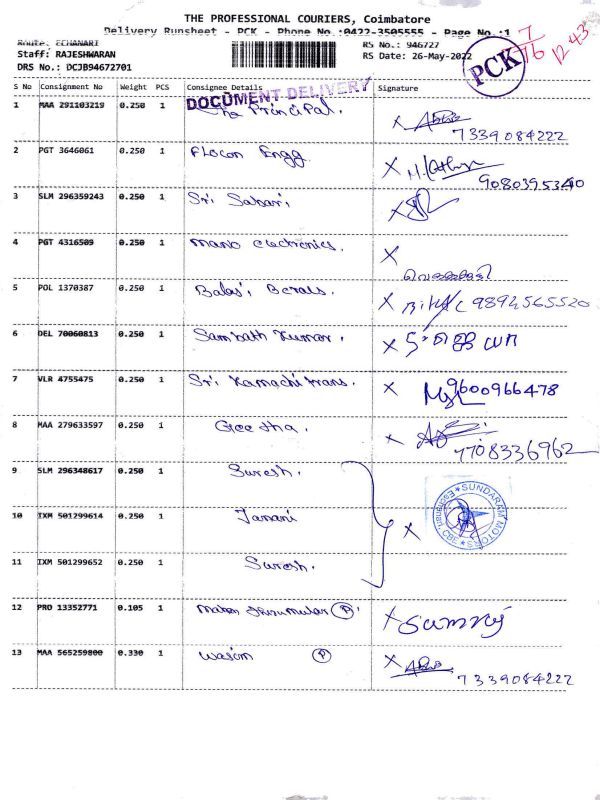 THE PROFESSIONAL COURIERS, Coimbatore
Delivery Runsheet - PCK - Phone No.:0422-3505555 - Page No.:1
7/16
12 43
Route: ECHANARI
RS No.: 946727
Staff: RAJESHWARAN
RS Date: 26-May-2022
PCK
DRS No.: DCJB94672701
S No Consignment No Weight PCS Consignee Details Signature
DOCUMENT DELIVERY
1 MAA 291103219 0.250 1 The Principal. X
7339084222
2 PGT 3646061 0.250 1 Flocon Engg. X
9080395340
3 SLM 296359243 0.250 1 Sri Sabari X
4 PGT 4316509 0.250 1 Mano electronics. X
5 POL 1370387 0.250 1 Balaji X 9894565520
6 DEL 70060813 0.250 1 Sambath Kumar. X
7 VLR 4755475 0.250 1 Sri Kamachi trans. X 9600966478
8 MAA 279633597 0.250 1 Geetha. X
7708336962
9 SLM 296348617 0.250 1 Suresh.
10 IXM 501299614 0.250 1 Janani X
SUNDARAM MOTORS
CBE
11 IXM 501299652 0.250 1 Suresh.
12 PRO 13352771 0.105 1 P X
13 MAA 565259800 0.330 1 Wasim P X
7339084222